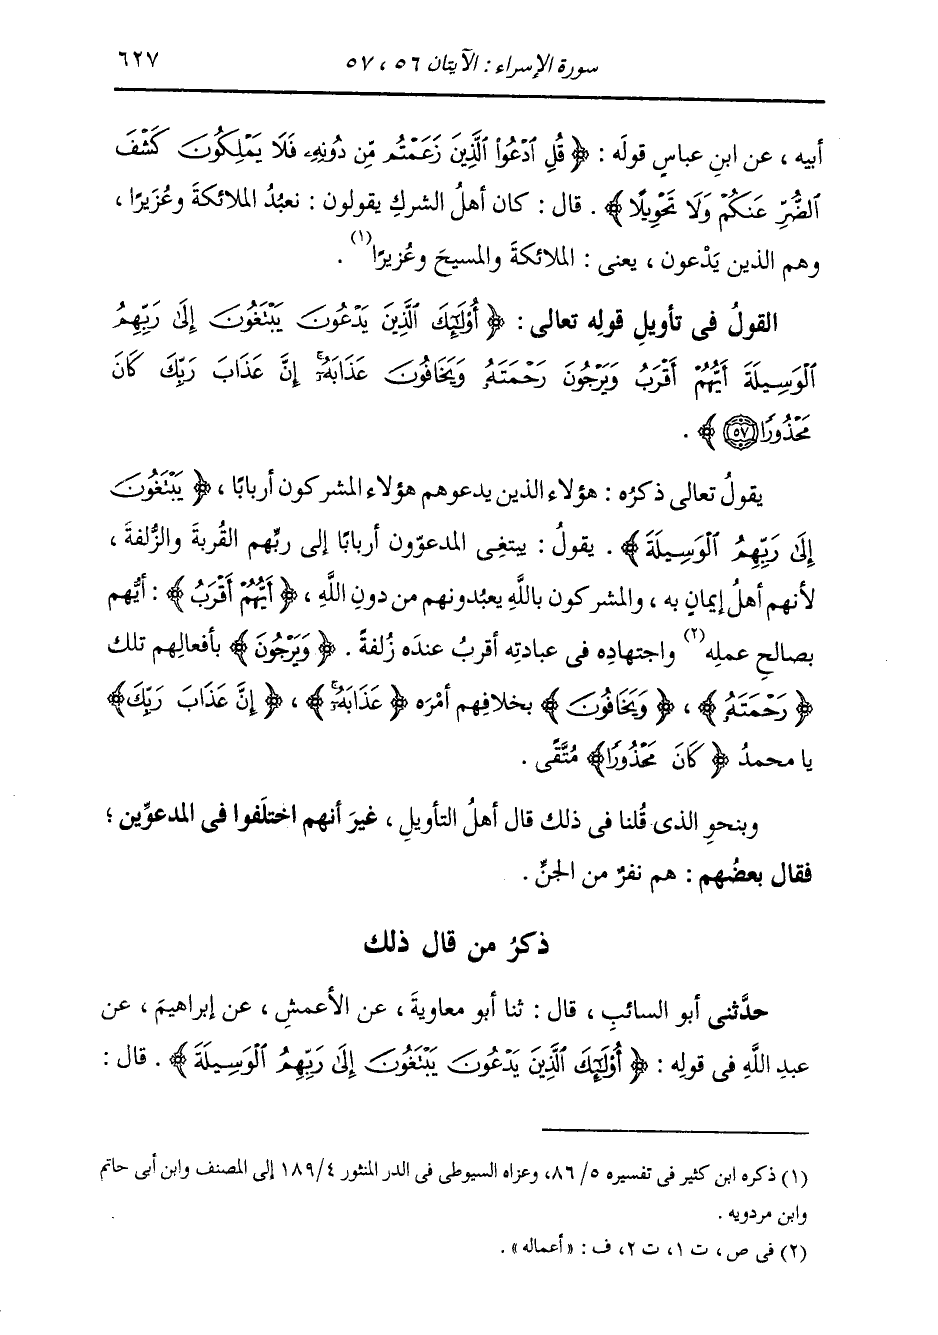 سورة الإسراء : الآيتان ٥٦ ، ٥٧ ٦٢٧
أبيه ، عن ابنِ عباسٍ قولَه : ﴿ قُلِ ٱدْعُوا۟ ٱلَّذِينَ زَعَمْتُم مِّن دُونِهِۦ فَلَا يَمْلِكُونَ كَشْفَ
ٱلضُّرِّ عَنكُمْ وَلَا تَحْوِيلًا ﴾ . قال : كان أهلُ الشركِ يقولون : نعبُدُ الملائكةَ وعُزَيرًا ،
وهم الذين يَدْعون ، يعنى : الملائكةَ والمسيحَ وعُزيرًا(١) .
القولُ فى تأويلِ قولِه تعالى : ﴿ أُو۟لَٰٓئِكَ ٱلَّذِينَ يَدْعُونَ يَبْتَغُونَ إِلَىٰ رَبِّهِمُ
ٱلْوَسِيلَةَ أَيُّهُمْ أَقْرَبُ وَيَرْجُونَ رَحْمَتَهُۥ وَيَخَافُونَ عَذَابَهُۥٓ إِنَّ عَذَابَ رَبِّكَ كَانَ
مَحْذُورًا ٥٧ ﴾ .
يقولُ تعالى ذكرُه : هؤلاء الذين يدعوهم هؤلاء المشركون أربابًا ، ﴿ يَبْتَغُونَ
إِلَىٰ رَبِّهِمُ ٱلْوَسِيلَةَ ﴾ . يقولُ : يبتغِى المدعوّون أربابًا إلى ربِّهم القُربةَ والزُّلفةَ ،
لأنهم أهلُ إيمانٍ به ، والمشركون باللَّهِ يعبُدونهم من دونِ اللَّهِ ، ﴿ أَيُّهُمْ أَقْرَبُ ﴾ : أيُّهم
بصالحِ عملِه(٢) واجتهادِه فى عبادتِه أقربُ عندَه زُلفةً . ﴿ وَيَرْجُونَ ﴾ بأفعالِهم تلك
﴿ رَحْمَتَهُۥ ﴾ ، ﴿ وَيَخَافُونَ ﴾ بخلافِهم أمْرَه ﴿ عَذَابَهُۥٓ ﴾ ، ﴿ إِنَّ عَذَابَ رَبِّكَ ﴾
يا محمدُ ﴿ كَانَ مَحْذُورًا ﴾ مُتَّقًى .
وبنحوِ الذى قُلنا فى ذلك قال أهلُ التأويلِ ، غيرَ أنهم اختلَفوا فى المدعوِّين ؛
فقال بعضُهم : هم نفرٌ من الجنِّ .
ذكرُ من قال ذلك
حدَّثنى أبو السائبِ ، قال : ثنا أبو معاويةَ ، عن الأعمشِ ، عن إبراهيمَ ، عن
عبدِ اللَّهِ فى قولِه : ﴿ أُو۟لَٰٓئِكَ ٱلَّذِينَ يَدْعُونَ يَبْتَغُونَ إِلَىٰ رَبِّهِمُ ٱلْوَسِيلَةَ ﴾ . قال :
(١) ذكره ابن كثير فى تفسيره ٥/ ٨٦، وعزاه السيوطى فى الدر المنثور ٤/ ١٨٩ إلى المصنف وابن أبى حاتم
وابن مردويه .
(٢) فى ص، ت ١، ت ٢، ف : «أعماله» .